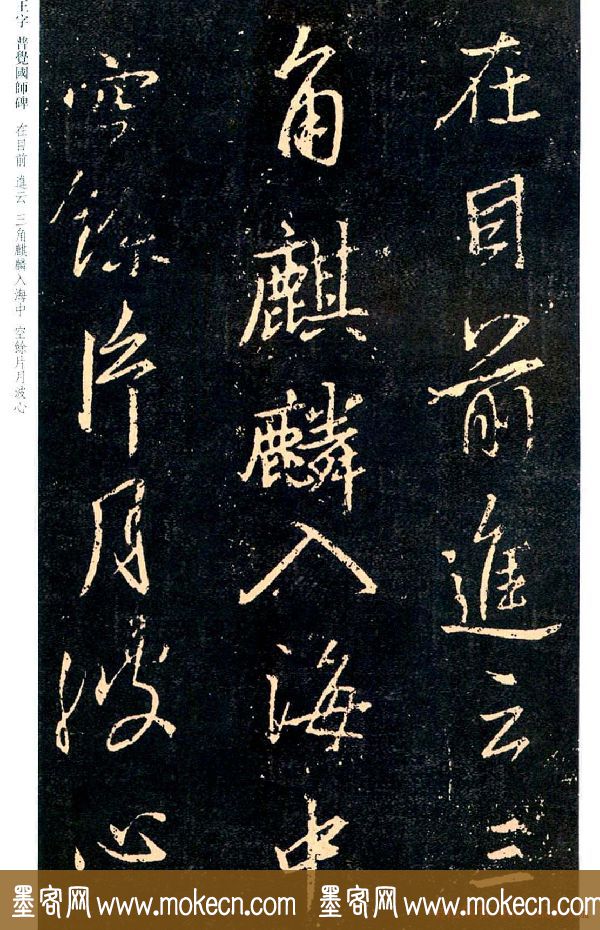 在目前進云三
角麒麟入海中
空餘片月波心
王字 普覺國師碑 在目前 進云 三角麒麟入海中 空餘片月波心
墨客网 www.mokecn.com 墨客网 www.mokecn.com 墨客网 www.mokecn.com